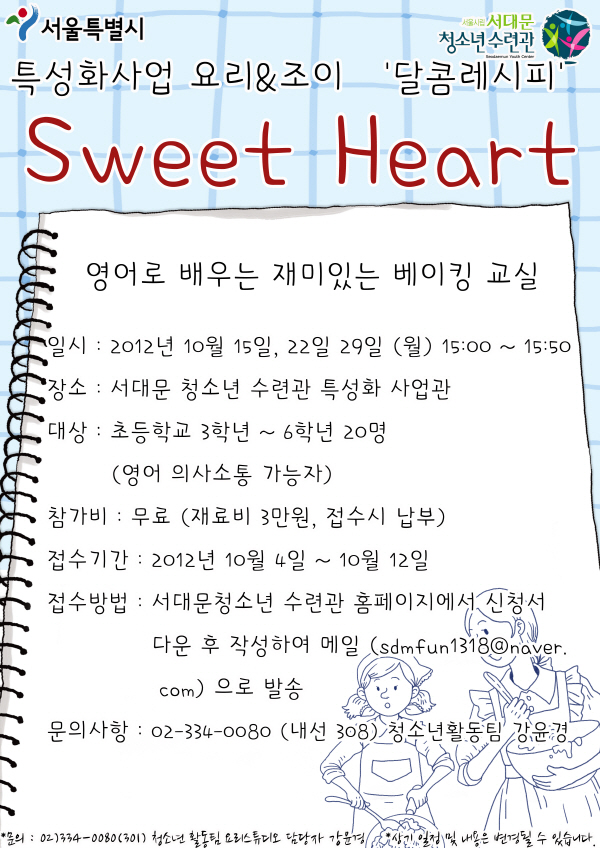 서울특별시
서울시립 서대문
청소년 수련관
Seodaemun Youth Center
특성화사업 요리&조이 '달콤레시피'
Sweet Heart
영어로 배우는 재미있는 베이킹 교실
일시 : 2012년 10월 15일, 22일 29일 (월) 15:00 ~ 15:50
장소 : 서대문 청소년 수련관 특성화 사업관
대상 : 초등학교 3학년 ~ 6학년 20명
(영어 의사소통 가능자)
참가비 : 무료 (재료비 3만원, 접수시 납부)
접수기간 : 2012년 10월 4일 ~ 10월 12일
접수방법 : 서대문청소년 수련관 홈페이지에서 신청서
다운 후 작성하여 메일 (sdmfun1318@naver.
com) 으로 발송
문의사항 : 02-334-0080 (내선 308) 청소년활동팀 강윤경
*문의 : 02)334-0080(301) 청소년 활동팀 요리스튜디오 담당자 강윤경 *상기 일정 및 내용은 변경될 수 있습니다.